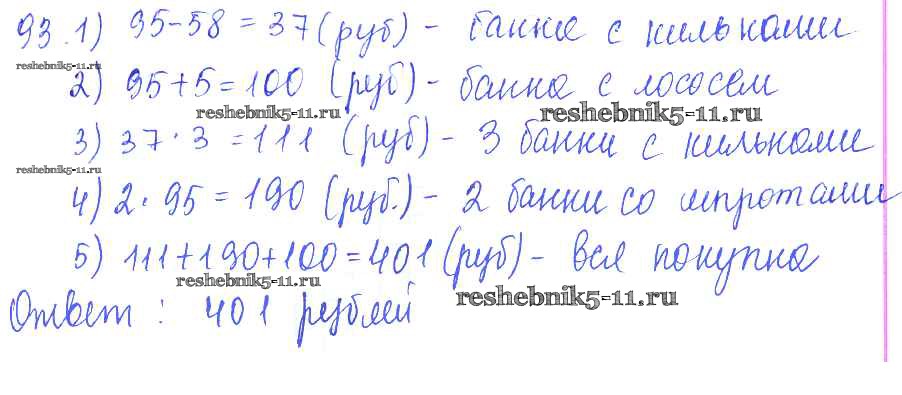 93. 1) 95-58 = 37 (руб) - банка с кильками
reshebnik5-11.ru
2) 95+5=100 (руб) - банка с лососем
reshebnik5-11.ru reshebnik5-11.ru
3) 37·3=111 (руб) - 3 банки с кильками
reshebnik5-11.ru
4) 2·95=190 (руб.) - 2 банки со шпротами
5) 111+190+100=401 (руб) - вся покупка
reshebnik5-11.ru reshebnik5-11.ru
Ответ: 401 рублей